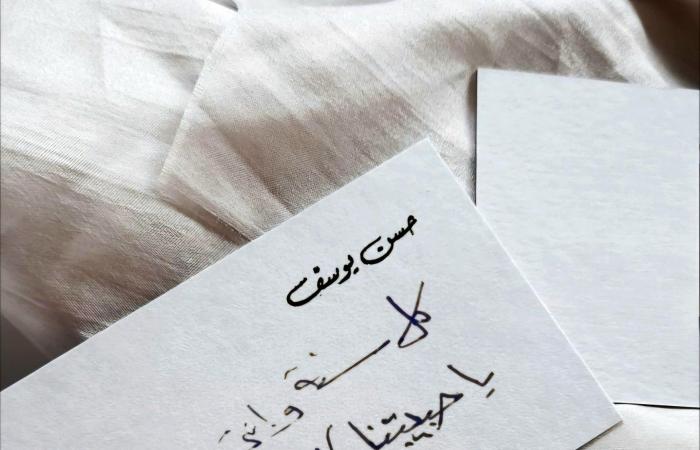 حسن يوسف
كل سنة وانتي
يا حبيبتنا